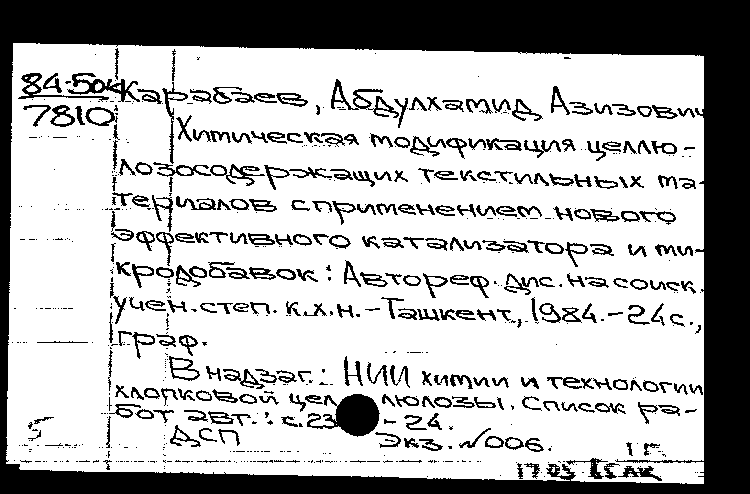 84-504 Карабаев, Абдулхамид Азизович
7810
Химическая модификация целлю-
лозосодержащих текстильных ма-
териалов с применением нового
эффективного катализатора и ми-
кродобавок: Автореф. дис. на соиск.
учен. степ. к.х.н. - Ташкент, 1984. - 24 с.,
граф.
В надзаг.: НИИ химии и технологии
хлопковой цел люлозы. Список ра-
бот авт.: с. 23 - 24.
5 ДСП Экз. №006.
1 г.
17 05